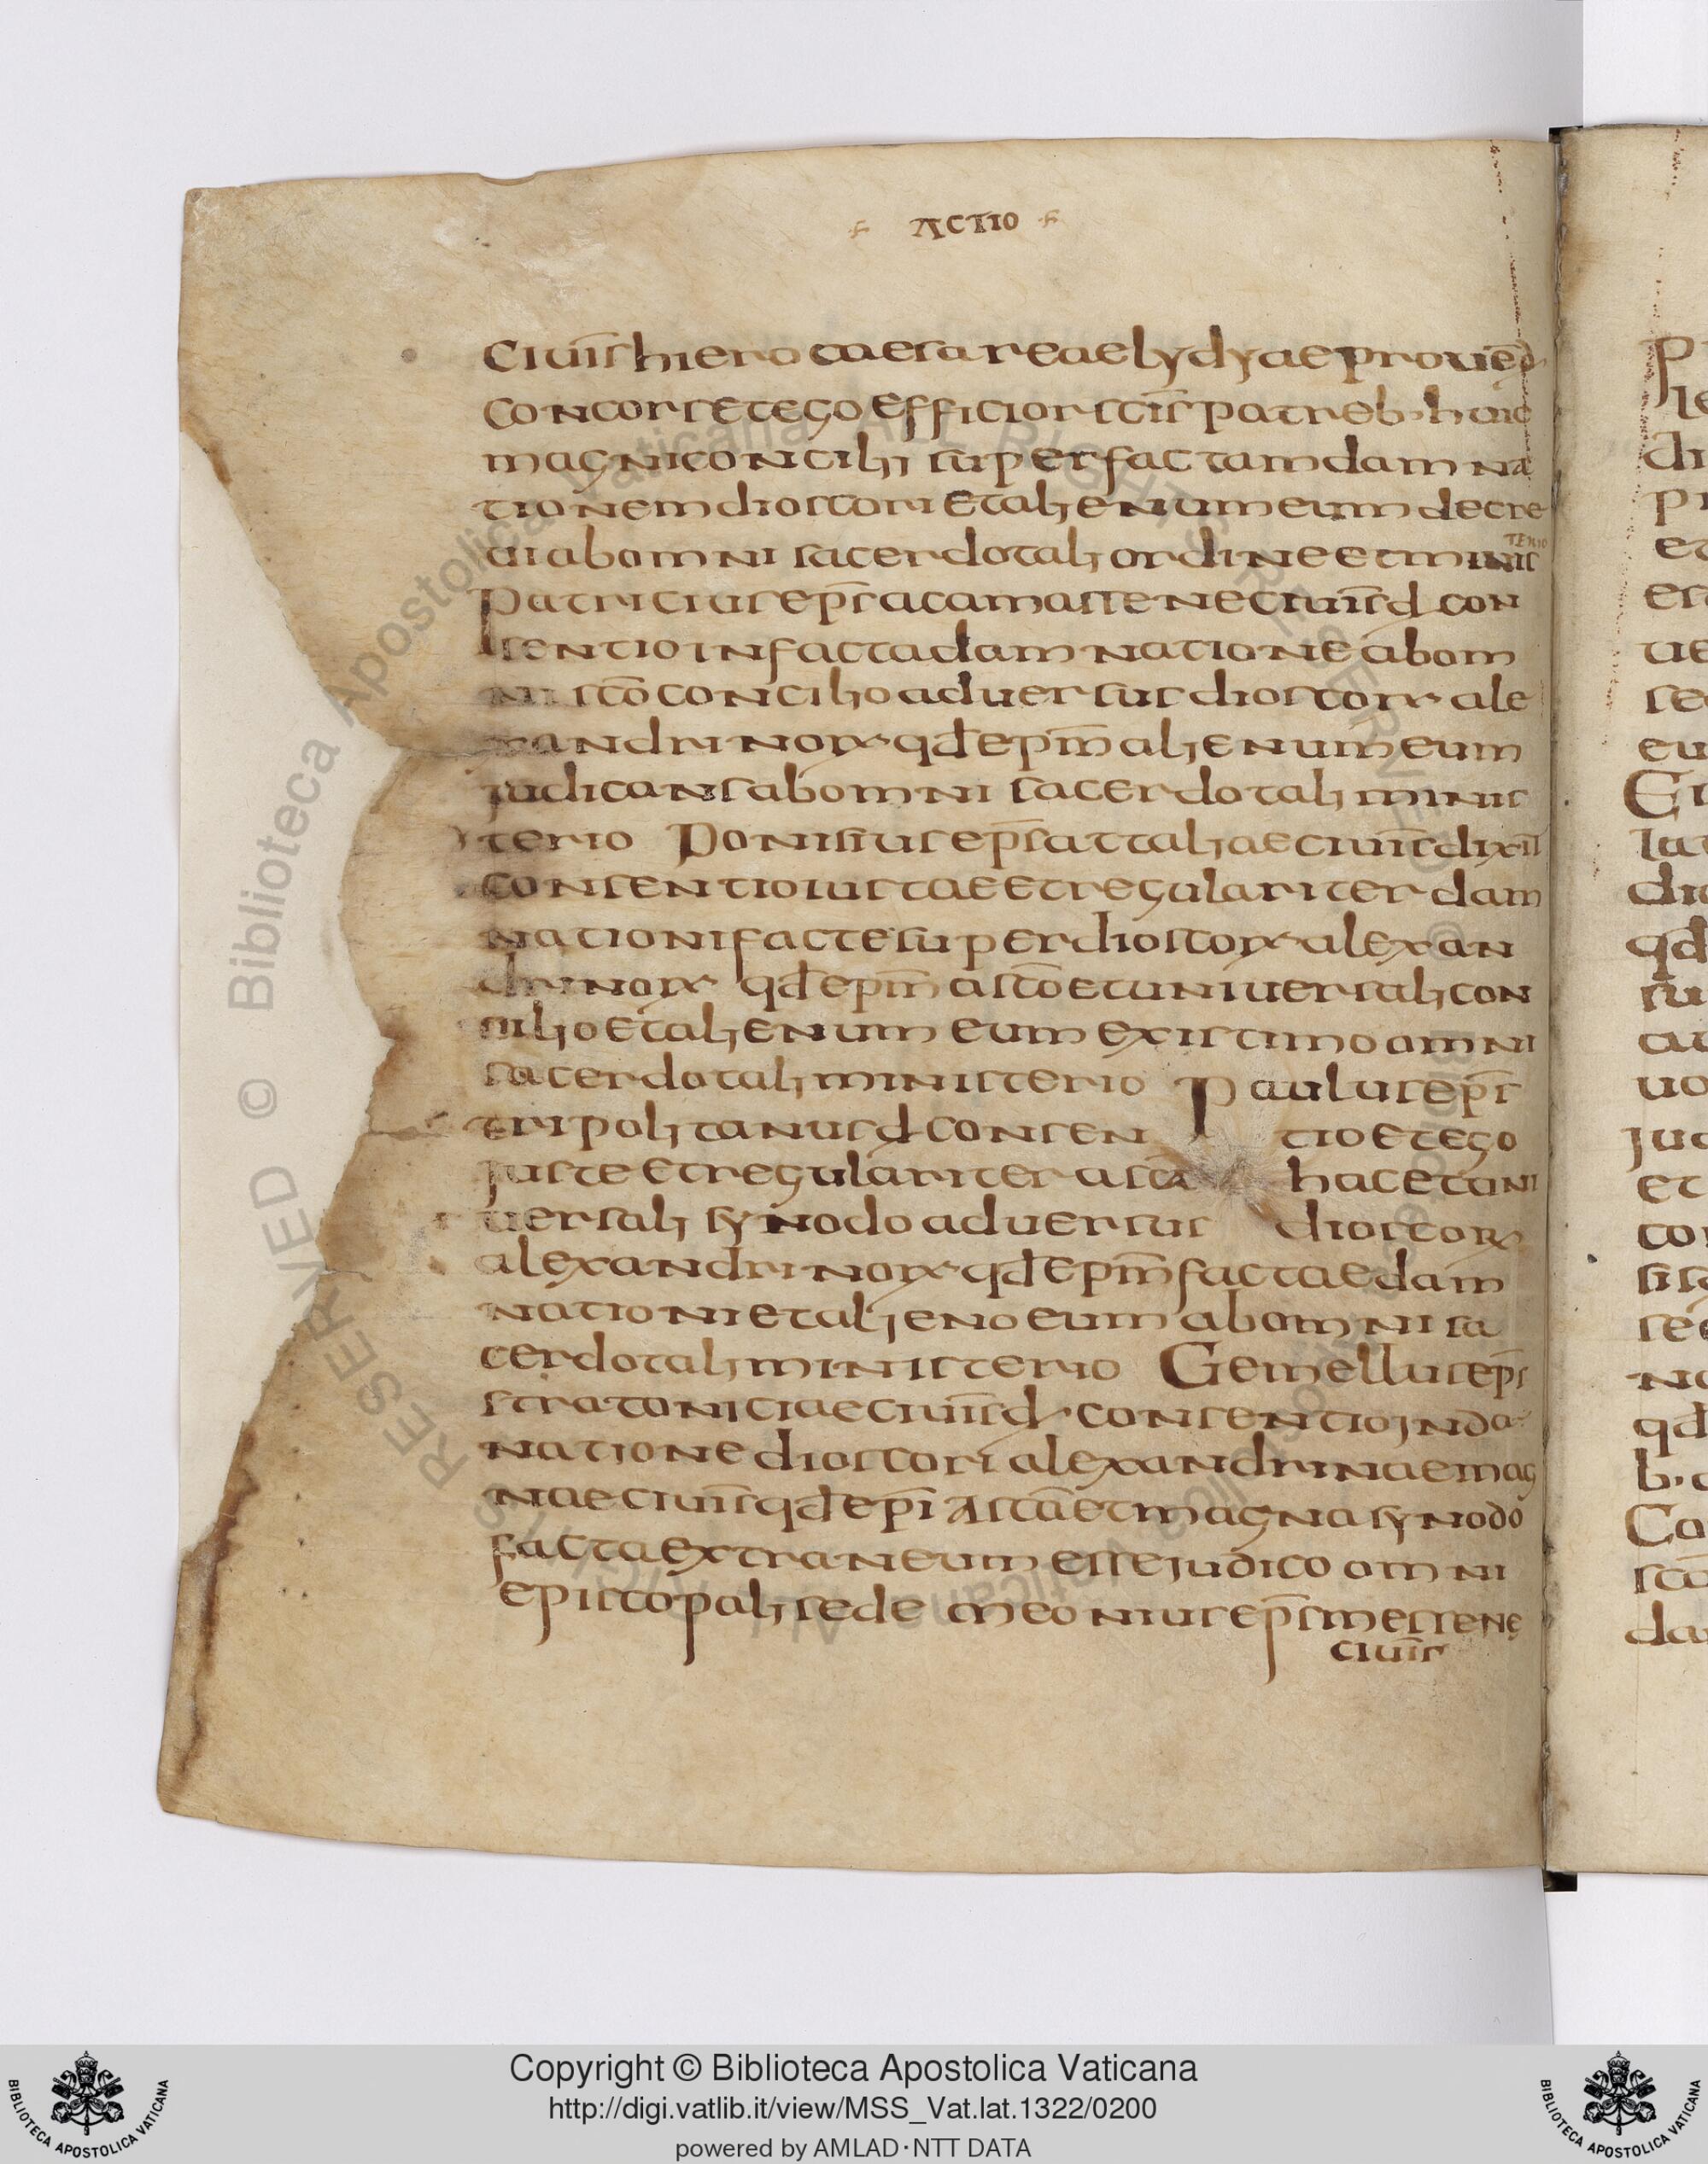 ACTIO
ciuīs hiero caesareae lydyae prouīe d
consors et ego efficior sc̄is patrib· huic
magni concilii super factam damna
tionem dioscori et alienum eum decre
ui ab omni sacerdotali ordine et minis
TERIO
Patricius ep̄s acamassene ciuīs d con
sentio in facta damnatione ab om
ni sc̄o concilio aduersus dioscoꝝ ale
xandrinoꝝ qd ep̄m alienum eum
judicans ab omni sacerdotali minis
terio Ponisius ep̄s attaliae ciuīs dixit
consentio iustae et regulariter dam
nationi facte super dioscoꝝ alexan
drinoꝝ qd ep̄m a sc̄o et uniuersali con
silio et alienum eum existimo omni
sacerdotali ministerio Paulus ep̄s
tripolitanus d consentio et ego
juste et regulariter a sc̄a hac et uni
uersali synodo aduersus dioscoꝝ
alexandrinoꝝ qd ep̄m factae dam
nationi et alieno eum ab omni sa
cerdotali ministerio Gemellus ep̄s
stratoniciae ciuīs d consentio jn da
natione dioscori alexandrinae mag
nae ciuīs qd ep̄i a sc̄a et magna synodo
facta extraneum esse judico omni
episcopali sede meonius ep̄s messene
ciuīs
Copyright © Biblioteca Apostolica Vaticana
http://digi.vatlib.it/view/MSS_Vat.lat.1322/0200
powered by AMLAD·NTT DATA
BIBLIOTECA APOSTOLICA VATICANA
BIBLIOTECA APOSTOLICA VATICANA